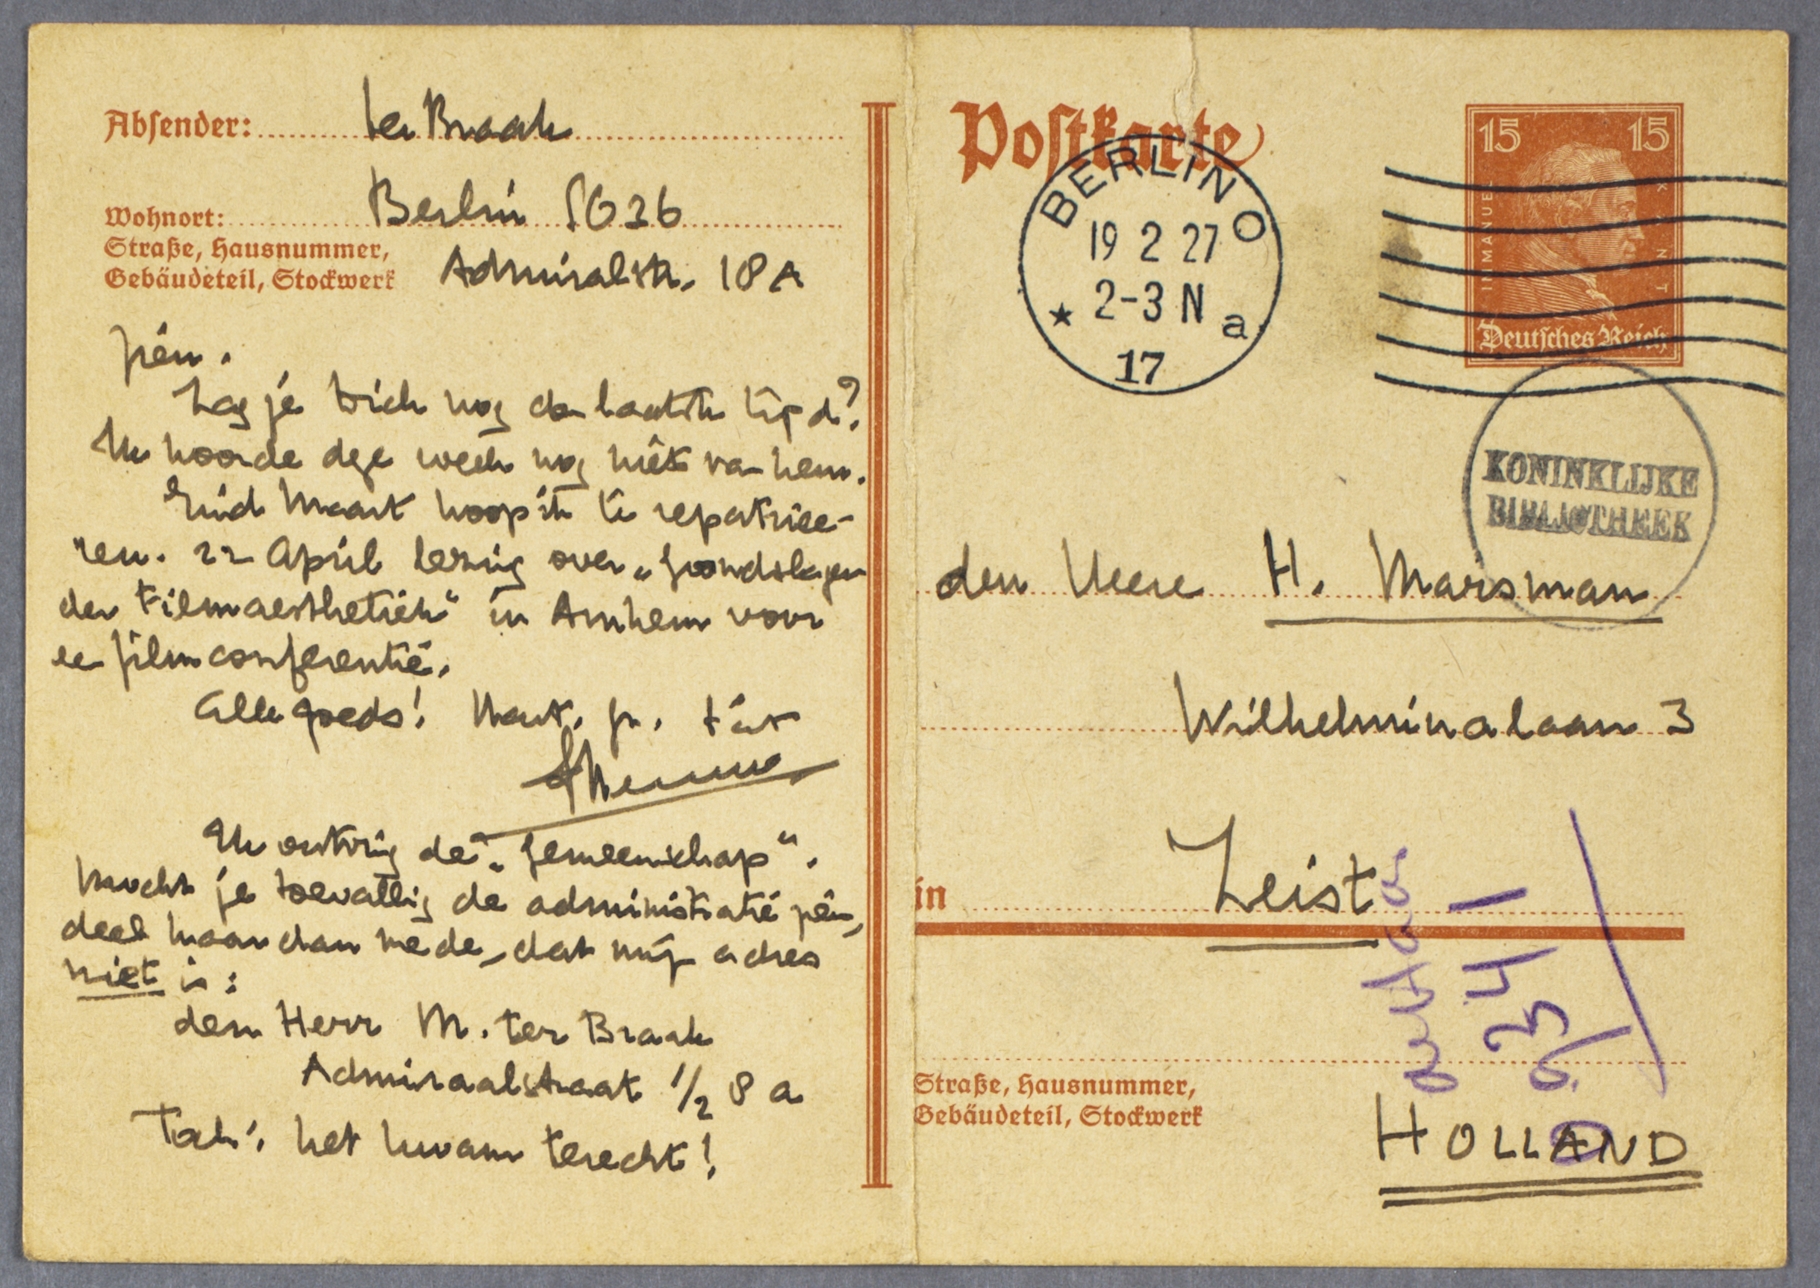 Absender: ter Braak
Wohnort: Berlin SO36
Straße, Hausnummer,
Gebäudeteil, Stockwerk Admiralstr. 18A
zien.
Zag je Dick nog den laatste tijd?
Ik hoorde deze week nog niets van hem.
Eind Maart hoop ik te repatriee-
ren. 22 April lezing over „Grondslagen
der Filmaesthetiek" in Arnhem voor
een filmconferentie.
Alle goeds! Hart. gr. t. à t.
Menno
Ik ontving de „Gemeenschap".
Mocht je toevallig de administratie zien,
deel haar dan mede, dat mijn adres
niet is:
den Herr M. ter Braak
Admiraalstraat 1/2 8 a
Toch: het kwam terecht!
Postkarte
BERLIN O
19 2 27
2-3 N
a
17
15 15
IMMANUEL KANT
Deutsches Reich
KONINKLIJKE
BIBLIOTHEEK
den Heere H. Marsman
Wilhelminalaan 3
in Zeist
Straße, Hausnummer,
Gebäudeteil, Stockwerk
HOLLAND